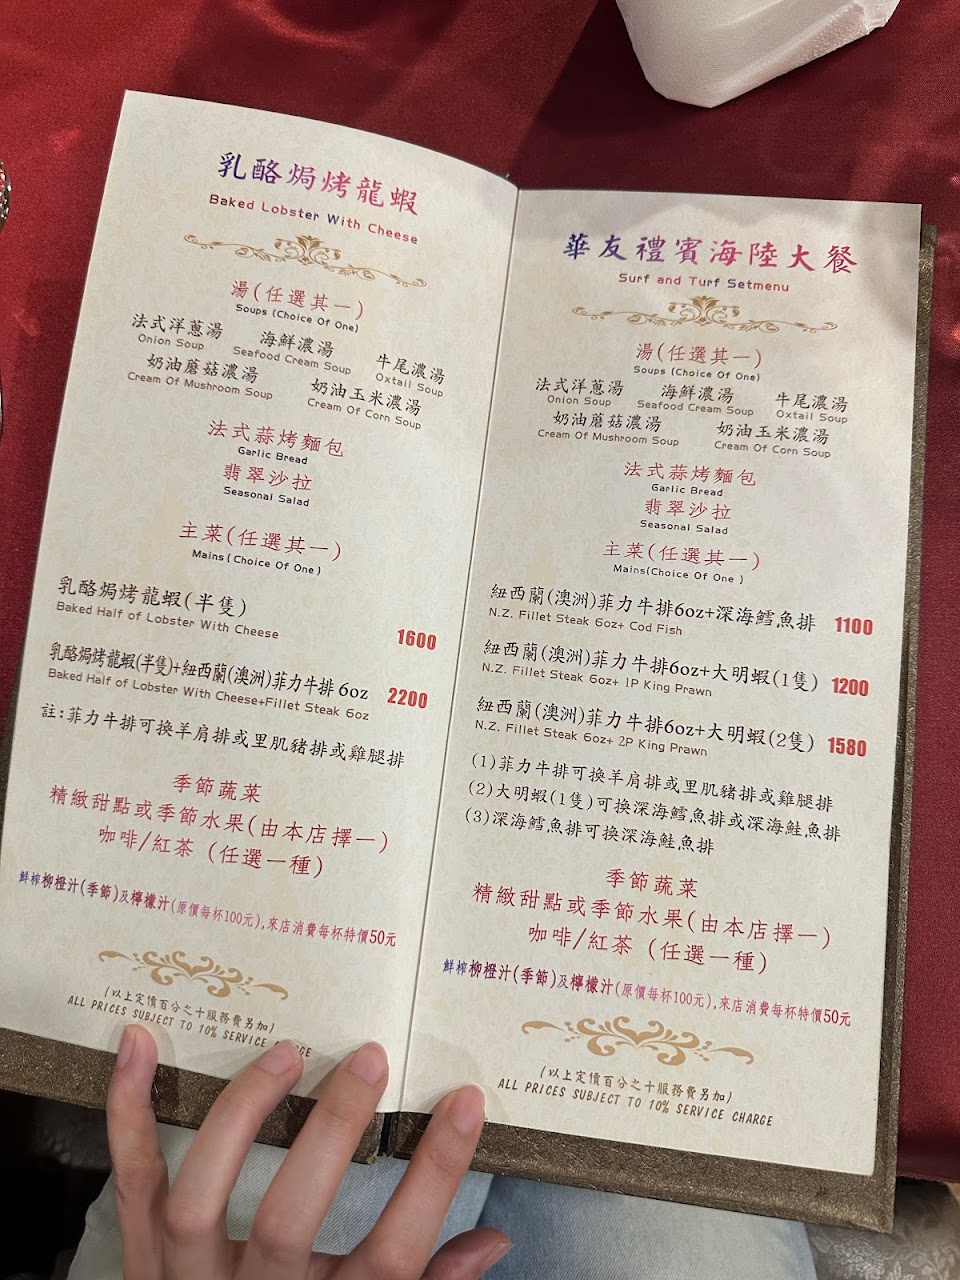 乳酪焗烤龍蝦
Baked Lobster With Cheese
湯(任選其一)
Soups (Choice Of One)
法式洋蔥湯 海鮮濃湯 牛尾濃湯
Onion Soup Seafood Cream Soup Oxtail Soup
奶油蘑菇濃湯 奶油玉米濃湯
Cream Of Mushroom Soup Cream Of Corn Soup
法式蒜烤麵包
Garlic Bread
翡翠沙拉
Seasonal Salad
主菜(任選其一)
Mains(Choice Of One)
乳酪焗烤龍蝦(半隻)
Baked Half of Lobster With Cheese 1600
乳酪焗烤龍蝦(半隻)+紐西蘭(澳洲)菲力牛排 6oz
Baked Half of Lobster With Cheese+Fillet Steak 6oz 2200
註:菲力牛排可換羊肩排或里肌豬排或雞腿排
季節蔬菜
精緻甜點或季節水果(由本店擇一)
咖啡/紅茶 (任選一種)
鮮榨柳橙汁(季節)及檸檬汁(原價每杯100元),來店消費每杯特價50元
(以上定價百分之十服務費另加)
ALL PRICES SUBJECT TO 10% SERVICE CHARGE
華友禮賓海陸大餐
Surf and Turf Setmenu
湯(任選其一)
Soups (Choice Of One)
法式洋蔥湯 海鮮濃湯 牛尾濃湯
Onion Soup Seafood Cream Soup Oxtail Soup
奶油蘑菇濃湯 奶油玉米濃湯
Cream Of Mushroom Soup Cream Of Corn Soup
法式蒜烤麵包
Garlic Bread
翡翠沙拉
Seasonal Salad
主菜(任選其一)
Mains(Choice Of One )
紐西蘭(澳洲)菲力牛排6oz+深海鱈魚排 1100
N.Z. Fillet Steak 6oz+ Cod Fish
紐西蘭(澳洲)菲力牛排6oz+大明蝦(1隻) 1200
N.Z. Fillet Steak 6oz+ 1P King Prawn
紐西蘭(澳洲)菲力牛排6oz+大明蝦(2隻) 1580
N.Z. Fillet Steak 6oz+ 2P King Prawn
(1)菲力牛排可換羊肩排或里肌豬排或雞腿排
(2)大明蝦(1隻)可換深海鱈魚排或深海鮭魚排
(3)深海鱈魚排可換深海鮭魚排
季節蔬菜
精緻甜點或季節水果(由本店擇一)
咖啡/紅茶 (任選一種)
鮮榨柳橙汁(季節)及檸檬汁(原價每杯100元),來店消費每杯特價50元
(以上定價百分之十服務費另加)
ALL PRICES SUBJECT TO 10% SERVICE CHARGE